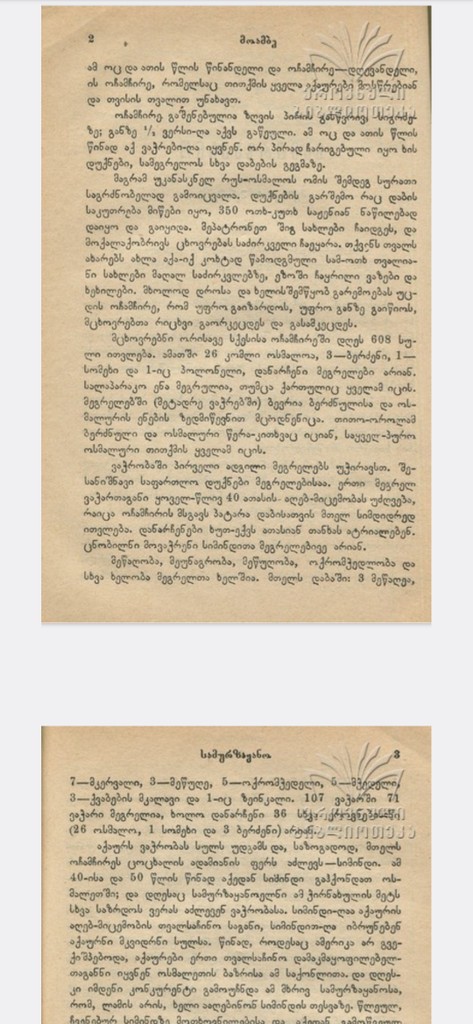 2
მოამბე
ამ ოც და ათის წლის წინანდელი და ოჩამჩირე—დღევანდელი,
ის ოჩამჩირე, რომელსაც თითქმის ყველა აქაურები მოსწრებიან
და თვისის თვალით უნახავთ.
ოჩამჩირე გაშენებულია ზღვის პირის განწვრივ სიგრძე-
ზე; განზე ¹/₂ ვერსი-ღა აქვს გაწეული. ამ ოც და ათის წლის
წინად აქ ვაჭრები-ღა იყვნენ. ორ პირად ჩარიგებული იყო ხის
დუქნები, სამეგრელოს სხვა დაბების გეგმაზე.
მაგრამ უკანასკნელ რუს-ოსმალოს ომის შემდეგ სურათი
საგრძნობელად გამოიცვალა. დუქნების გარშემო რაც დაბის
საკუთრება მიწები იყო, 350 ოთხ-კუთხ საჟენიან ნაწილებად
დაიყო და გაიყიდა. მეპატრონეთ შიგ სახლები ჩაიდგეს, და
მოქალაქობრივს ცხოვრებას საძირკველი ჩაეყარა. თქვენს თვალს
ახარებს ახლა აქა-იქ კოხტად წამოდგმული სამ-ოთხ თვალია-
ნი სახლები მაღალ საძირკვლებზე, ეზოში ჩაყრილი ვაზები და
ხეხილები. მხოლოდ დროსა და ხელის შემწყობ გარემოებას უც-
დის ოჩამჩირე, რომ უფრო გაიზარდოს, უფრო განზე გაიწიოს,
მცხოვრებთა რიცხვი გაორკეცდეს და გასამკეცდეს.
მცხოვრებნი ორისავე სქესისა ოჩამჩირეში დღეს 608 სუ-
ლი ითვლება. ამათში 26 კომლი ოსმალოა, 3—ბერძენი, 1—
სომეხი და 1-იც პოლონელი, დანარჩენი მეგრელები არიან.
სალაპარაკო ენა მეგრულია, თუმცა ქართულიც ყველამ იცის.
მეგრელებში (მეტადრე ვაჭრებში) ბევრია ბერძნულისა და ოს-
მალურის ენების ზედმიწევნით მცოდნენიცა. თითო-ოროლამ
ბერძნული და ოსმალური წერა-კითხვაც იციან, საყველ-პურო
ოსმალური თითქმის ყველამ იცის.
ვაჭრობაში პირველი ადგილი მეგრელებს უჭირავსთ. შე-
სანიშნავი საფართლო დუქნები მეგრელებისაა. ერთი მეგრელ
ვაჭართაგანი ყოველ-წლივ 40 ათასის აღებ-მიცემობას უძღვება,
რაიცა ოჩამჩირის მსგავს პატარა დაბისათვის მთელ სიმდიდრედ
ითვლება. დანარჩენები ხუთ-ექვს ათასიან თანხას ატრიალებენ.
ცნობილნი მოვაჭრენი სიმინდითა მეგრელებივე არიან.
მეწაღობა, მეუნაგრობა, მეწუღობა, ოქრომჭედლობა და
სხვა ხელობა მეგრელთა ხელშია. მთელს დაბაში: 3 მეწაღეა,
სამურზაყანო
3
7—მკერვალი, 3—მეწუღე, 5—ოქრომჭედელი, 5—მჭედელი,
3—ქვაბების მკალავი და 1-იც ზეინკალი. 107 ვაჭარში 71
ვაჭარი მეგრელია, ხოლო დანარჩენი 36 სხვა
(26 ოსმალო, 1 სომეხი და 3 ბერძენი) არიან.
აქაურს ვაჭრობას სულს უდგამს და, საზოგადოდ, მთელს
ოჩამჩირეს ცოცხალის ადამიანის ფერს აძლევს—სიმინდი. ამ
40-ისა და 50 წლის წინად აქედან სიმინდი გაჰქონდათ ოს-
მალეთში; და დღესაც სამურზაყანოელნი ამ ჭირნახულის მეტს
სხვა საზრდოს ვერას აძლევენ ვაჭრობასა. სიმინდი-ღაა აქაურის
აღებ-მიცემობის თვალსაჩინო საგანი, სიმინდით-ღა იბრუნებენ
აქაურნი მკვიდრნი სულსა. წინად, როდესაც ამერიკა არ გვე-
ქიშპებოდა, აქაურები ერთი თვალსაჩინო დამაკმაყოფილებელ-
თაგანნი იყვნენ ოსმალეთის ბაზრისა ამ საქონლითა. და დღეს-
კი იმდენი კონკურენტი გამოუჩნდა ამ მხრივ სამურზაყანოსა,
რომ, ლამის არის, ხელი ააღებინონ სიმინდის თესვაზე. წლეულ,